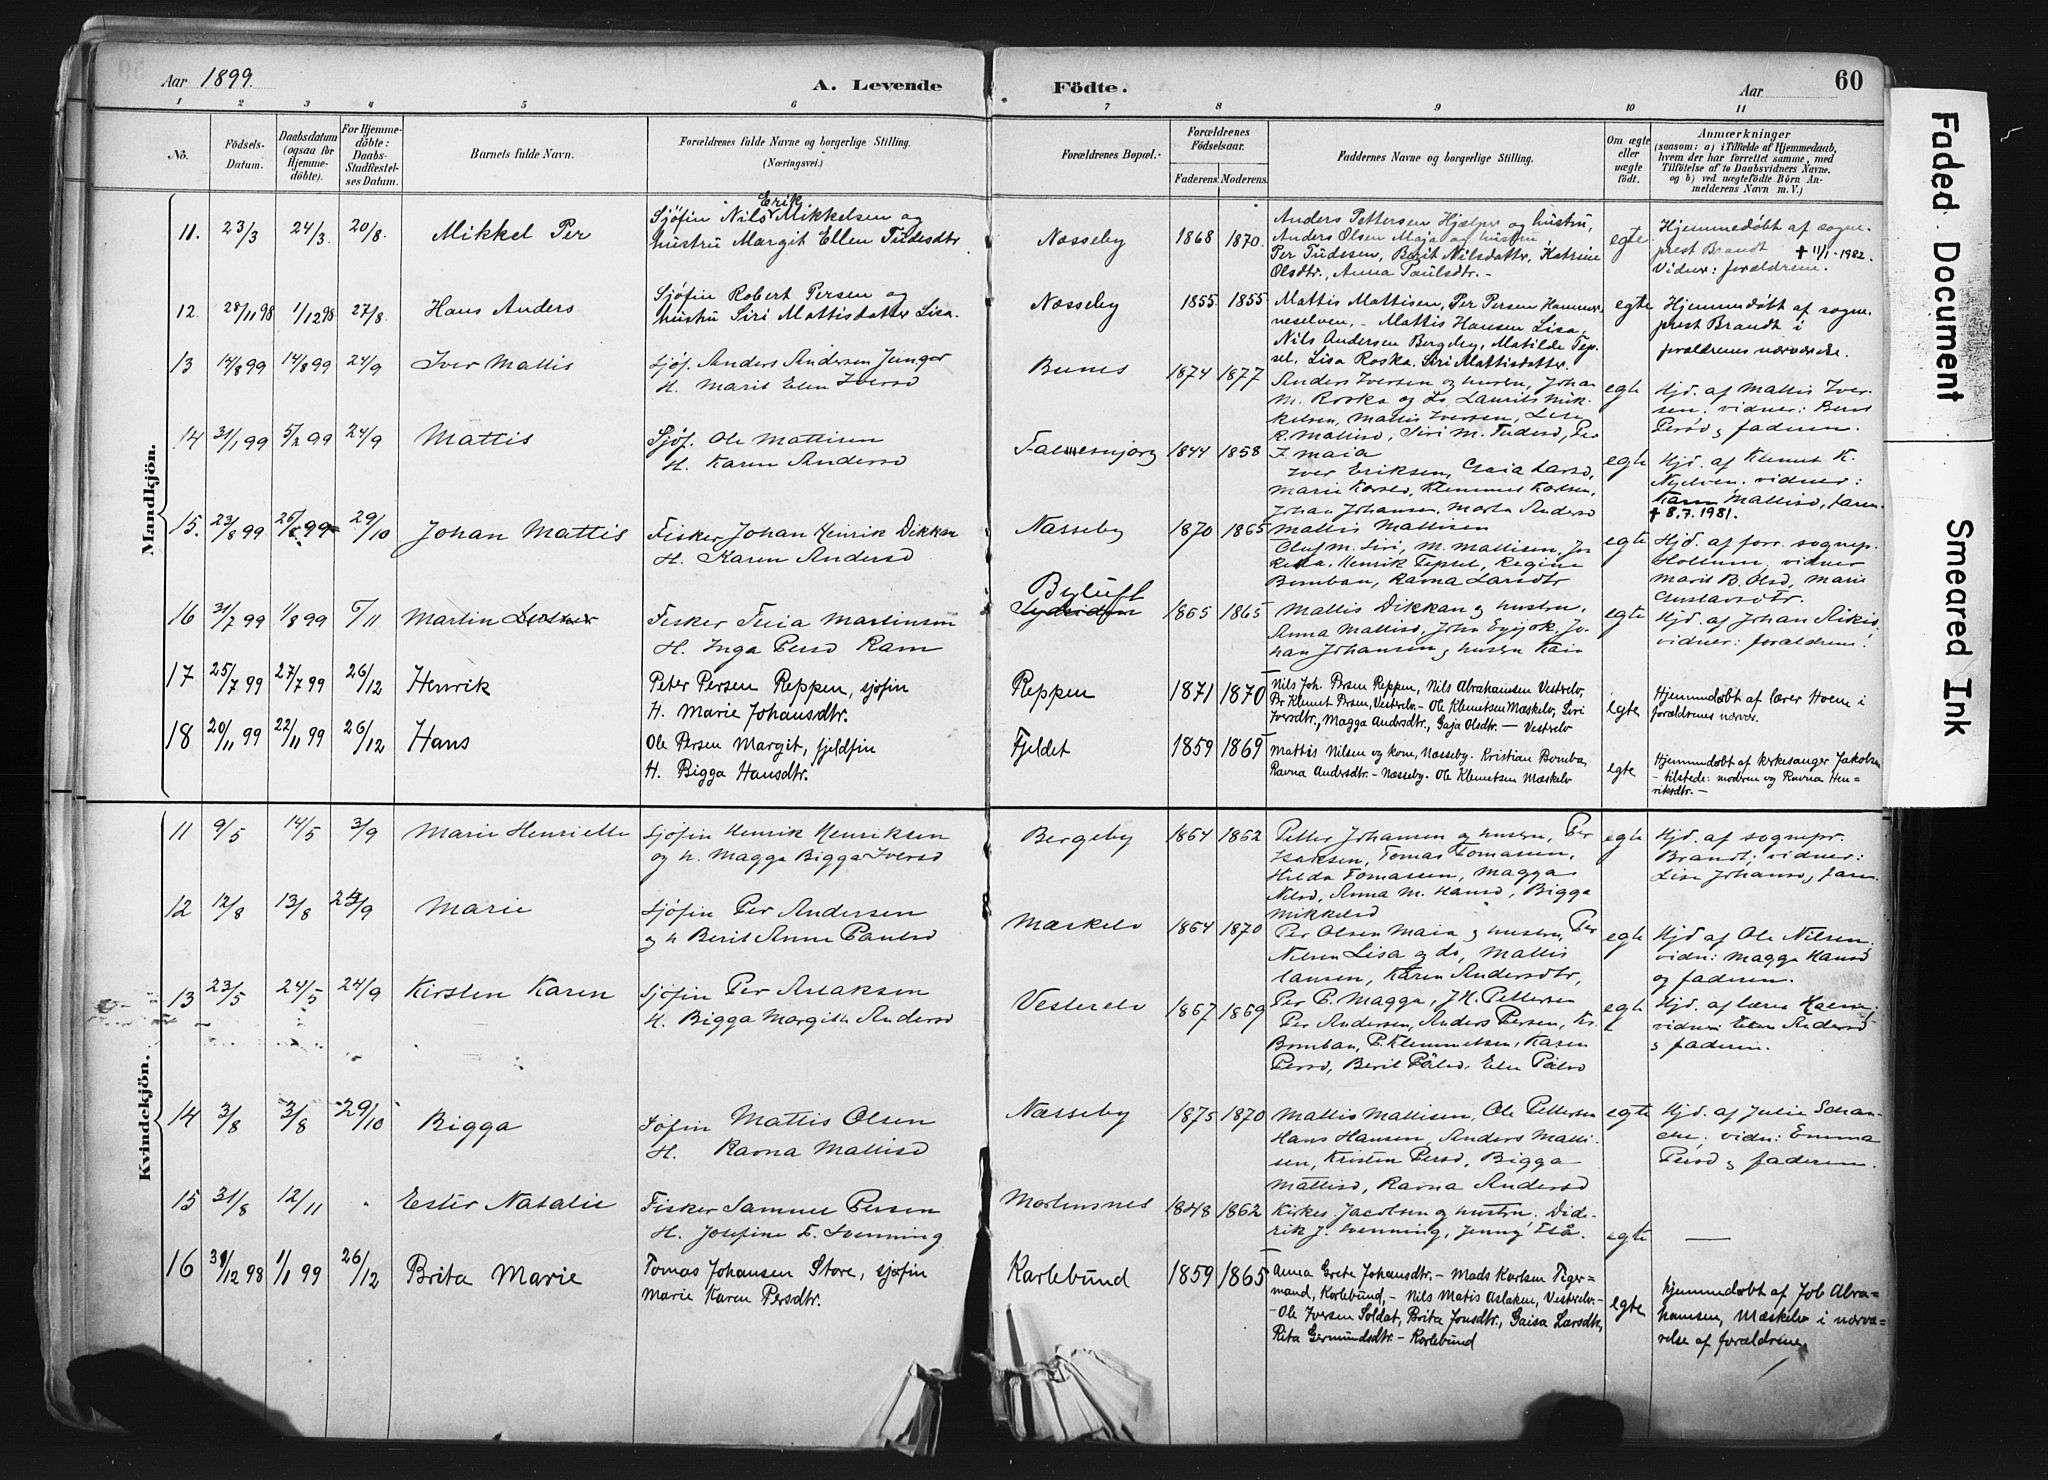 Aar 1899.
A. Levende Födte.
Aar
60
1 2 3 4 5 6 7 8 9 10 11
No.
Födsels-Datum.
Daabsdatum (ogsaa for Hjemme-döbte).
For Hjemme-döbte: Daabs-Stadfæstel-ses Datum.
Barnets fulde Navn.
Forældrenes fulde Navne og borgerlige Stilling. (Næringsvei.)
Forældrenes Bopæl.
Forældrenes Födselsaar.
Faderens. Moderens.
Faddernes Navne og borgerlige Stilling.
Om ægte eller uægte födt.
Anmærkninger
(saasom: a) i Tilfælde af Hjemmedaab,
hvem der har forrettet samme, med
Tilföielse af to Daabsvidners Navne,
og b) ved uægtefödte Börn An-
melderens Navn m. V.)
Mandkjön.
11. 23/3 24/3 20/8 Mikkel Per
Sjøfin Nils Erik Mikkelsen og
hustru Margit Ellen Tudesdtr
Næsseby 1868 1870.
Anders Pettersen Hjælper og hustru,
Anders Olsen Maja og hustru,
Per Tudesen, Berit Nilsdatter, Katrine
Olsdtr., Anna Paulsdtr. -
egte
Hjemmedøbt af sogne-
prest Brandt † 11/1-1982.
Vidner: forældrene.
12. 28/11 98 1/12 98 27/8 Hans Anders
Sjøfin Robert Persen og
hustru Siri Mattisdatter Lisa.
Næsseby 1855 1855
Mattis Mattisen, Per Persen Hammer-
neselven, - Mattis Hansen Lisa,
Nils Andersen Bergeby, Matilde Tep-
sel, Lisa Roska, Siri Mattisdatter.
egte
Hjemmedøbt af sogne-
prest Brandt i
forældrenes nærværelse.
13 14/8 99 14/8 99 24/9 Iver Mattis
Sjøf. Anders Andersen Junger
H. Marit Elen Iversd
Bunes 1874 1877
Anders Iversen og hustru, Johan
M. Roska og do, Laurits Mik-
kelsen, Mattis Iversen,
R. Mattisd, Siri M. Tudesd, Per
F. Maia
egte
Hjd. af Mattis Iver-
sen. vidner:
Persd og faderen.
14 31/1 99 5/2 99 24/9 Mattis
Sjøf. Ole Mattisen
H. Karen Andersd
1844 1858
Iver Eriksen, Larsd,
Marie Karlsd, Klemmet Karlsen,
Johan Johansen, Marta Andersd
Mattis Mattisen
egte
Hjd. af Klemet K.
Nyelven. vidner:
Karen Mattisd, faren
† 8.7.1981.
15. 23/8 99 26/8 99 29/10 Johan Mattis
Fisker Johan Heinrik Dikkan
H. Karen Andersd
Næsseby 1870 1865
Oluf M. Siri, M. Mattisen,
Henrik Tepsel, Regine
Bomban, Ravna Larsdtr
egte
Hjd. af forr. sognep.
Hollum, vidner
Marit B. Olsd, Marie
Gustavsdtr.
16 31/7 99 1/8 99 5/11 Martin
Fisker Martinsen
H. Inga Persd Ram
Byluft 1865 1865
Mattis Dikkan og hustru,
Anna Mattisd, John
han Johansen og hustru
egte
Hjd. af Johan
vidner: forældrene!
17 25/7 99 27/7 99 26/12 Henrik
Peter Persen Reppen, sjøfin
H. Marie Johansdtr.
Reppen 1871 1870
Nils Joh. Persen Reppen, Nils Abrahamsen Vestrelv,
Pr Klemet Prsen, Vestrelv - Ole Klemetsen Mæskelv, Siri
Iversdtr., Magga Andrsdtr., Gaja Olsdtr. - Vestrelv
egte
Hjemmedøbt af lærer Hoem i
forældrenes nærvær.
18 20/11 99 22/11 99 26/12 Hans
Ole Persen Margit, fjeldfin
H. Bigga Hansdtr.
Fjeldet 1859 1869
Mattis Nilsen og kone, Næsseby. Kristian Bomba,
Ravna Andersdtr. - Næsseby. Ole Klemetsen Mæskelv
egte
Hjemmedøbt af kirkesanger Jakobsen
- tilstede: modren og Ravna Hen-
riksdtr. -
Kvindekjön.
11 9/5 14/5 3/9 Marie Henriette
Sjøfin Henrik Henriksen
og h. Magga Bigga Iversd
Bergeby 1864 1862
Petter Johansen og hustru, Per
Isaksen, Tomas Tomassen,
Hilda Tomassen, Magga
Nilsd, Anna M. Hansd, Bigga
Mikkelsd
egte
Hjd. af sognepr.
Brandt; vidner:
Lisa Johansd, faren.
12 12/8 13/8 24/9 Marie
Sjøfin Per Andersen
og h Berit Anne Paulsd
Mæskelv 1864 1870
Per Olsen Maia og hustru, Per
Nilsen Lisa og do, Mattis
Hansen, Karen Andersdtr,
egte
Hjd af Ole Nilsen,
vidn: Magga Hansd
og faderen.
13 23/5 24/5 24/9 Kirsten Karen
Sjøfin Per Aslaksen
H. Bigga Margith Andersd
Vesterelv 1867 1869
Per P. Magga, J.K. Pettersen
Per Andersen, Anders Persen, Kr.
Bomban, P. Klemmetsen, Karen
Persd, Berit Pålsd, Elen Pålsd
egte
Hjd. af lærer Hoem!
vidner: Elen Andersd
og faderen.
14 3/8 3/8 29/10 Bigga
Sjøfin Mattis Olsen
H. Ravna Mattisd
Næsseby 1875 1870
Mattis Mattisen, Ole Pettersen
Hans Hansen, Anders Matti-
sen, Kristen Persd, Bigga
Mattisd, Ravna Andersd
egte
Hjd. af Julie Schan-
che, vidn: Emma
Persd og faderen.
15 31/8 12/11 Ester Natalie
Fisker Samuel Persen
H. Josefine F. Svenning
Mortensnes 1848 1862
Kirkes. Jacobsen og hustru. Dide-
rik J. Svenning, Jenny Elå.
egte
—
16 31/12 98 1/1 99 26/12 Brita Marie
Tomas Johansen Store, sjøfin
Marie Karen Persdtr.
Karlebund 1859 1865
Anna Grete Johansdtr. - Mads Karlsen Tiger-
mand, Karlebund, - Nils Matis Aslaksen, Vestrelv. -
- Ole Iversen Soldat, Brita Jonsdtr., Gaisa Larsdtr,
Rita Germundsdtr. - Karlebund
egte
hjemmedøbt af Job Abra-
hamsen, Mæskelv i nærvæ-
relse af forældrene.
Faded Document
Smeared Ink